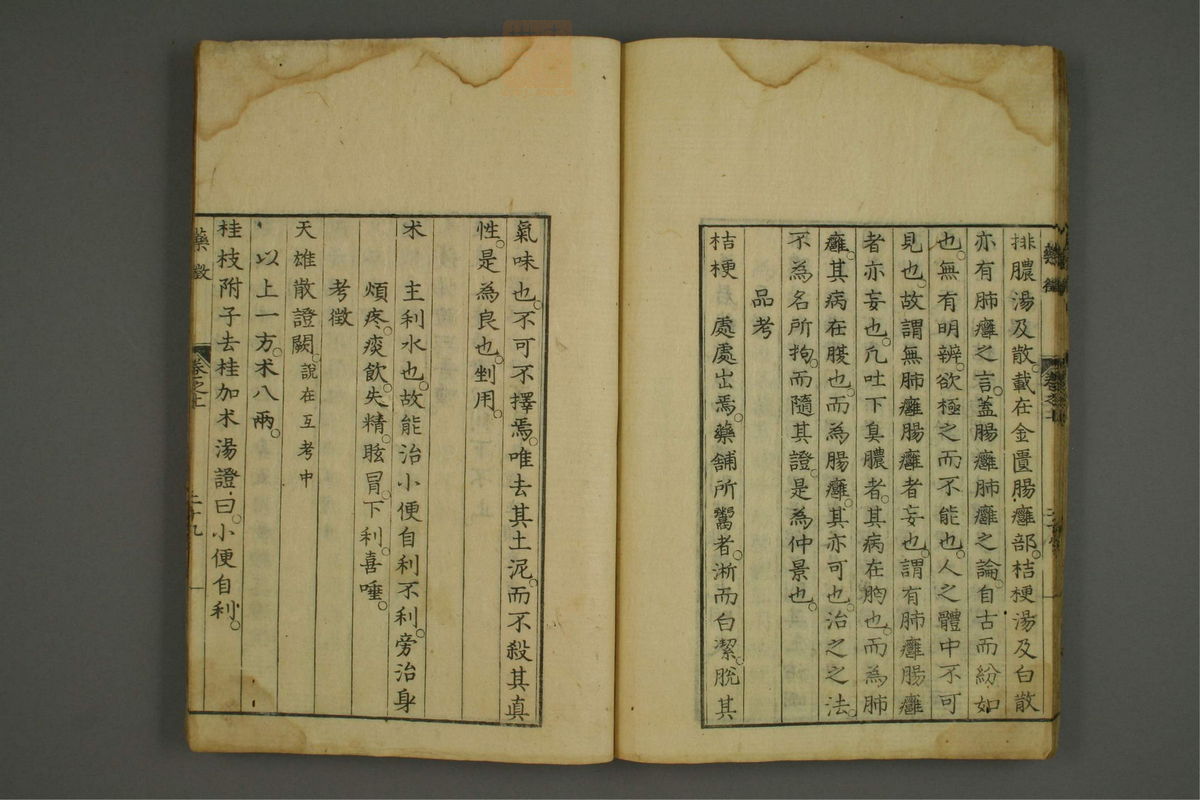 排膿湯及散。載在金匱腸癰部。桔梗湯及白散
亦有肺癰之言。蓋腸癰肺癰之論。自古而紛如
也。無有明辨。欲極之而不能也。人之體中不可
見也。故謂無肺癰腸癰者妄也。謂有肺癰腸癰
者亦妄也。凡吐下臭膿者。其病在胸也。而為肺
癰。其病在腹也。而為腸癰。其亦可也。治之之法。
不為名所拘。而隨其證。是為仲景也。
品考
桔梗 處處出焉。藥舖所鬻者。淅而白潔。脫其
氣味也。不可不擇焉。唯去其土泥。而不殺其真
性。是為良也。剉用。
朮 主利水也。故能治小便自利不利。旁治身
煩疼。痰飲。失精。眩冒。下利。喜唾。
考徵
天雄散證闕。說在互考中
以上一方。朮八兩。
桂枝附子去桂加朮湯證曰。小便自利。
藥徵
卷之上